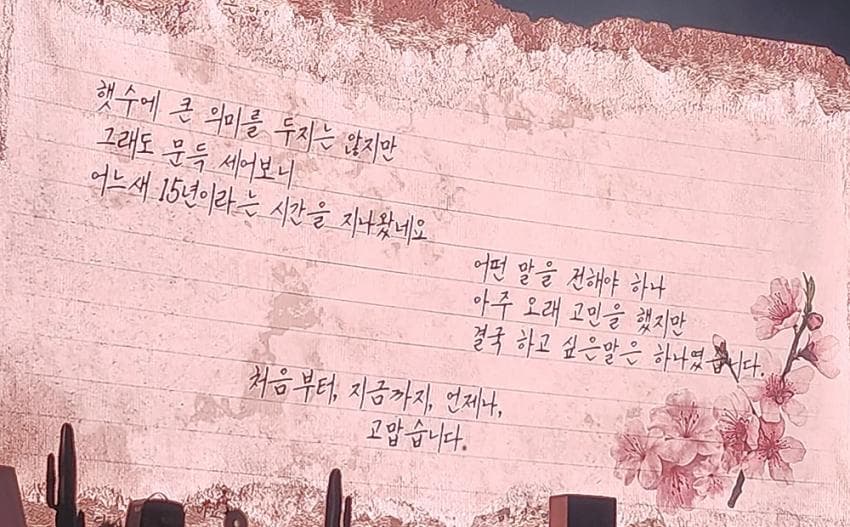 햇수에 큰 의미를 두지는 않지만
그래도 문득 세어보니
어느새 15년이라는 시간을 지나왔네요
어떤 말을 전해야 하나
아주 오래 고민을 했지만
결국 하고 싶은말은 하나였습니다.
처음부터, 지금까지, 언제나,
고맙습니다.